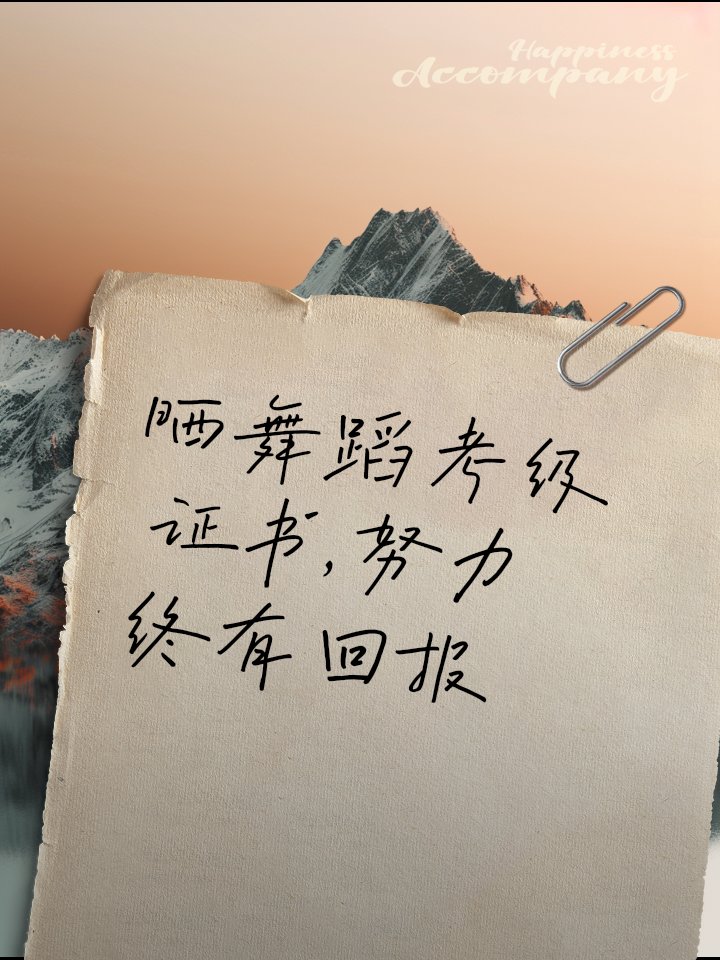 Happiness
Accompany
晒舞蹈考级
证书，努力
终有回报